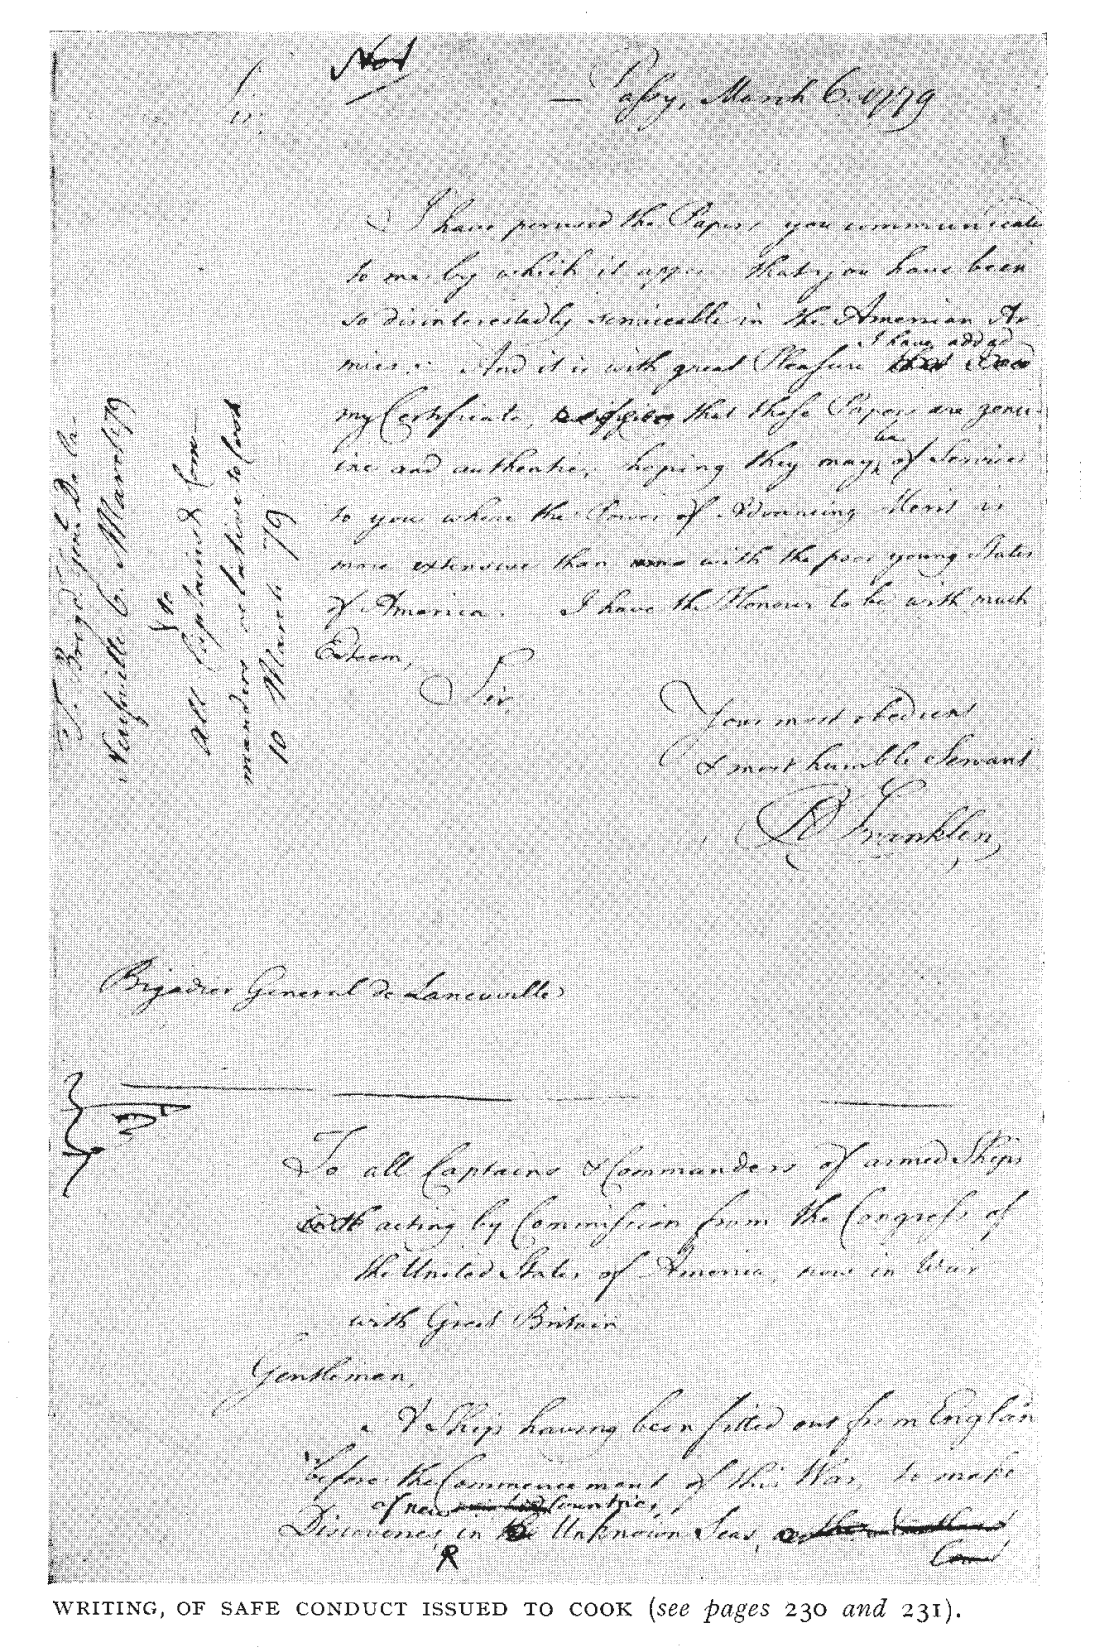 Not
Passy, March 6. 1779
Sir.
I have perused the Papers you communicate
to me by which it appe that you have been
so disinterestedly serviceable in the American Ar
mies. And it is with great Pleasure that I
I have added
my Certificate, that these Papers are genu-
ine and authentic, hoping they may of Service
be
to you where the Power of Advancing Merit is
more extensive than with the poor young States
of America. I have the Honour to be with much
Esteem,
Sir,
Your most obedient
& most humble Servant
B Franklin
Brigadier General de Laneuville
To Brigd. Genl. De La-
Neufville 6. March 79
& to
All Captains & Com-
manders relative to Cook
10 March 79
To all Captains & Commanders of armed Ships
acting by Commission from the Congress of
the United States of America, now in War
with Great Britain
Gentlemen,
A Ship having been fitted out from England
before the Commencement of this War, to make
of new Countries,
Discoveries in Unknown Seas,
Coast
WRITING, OF SAFE CONDUCT ISSUED TO COOK (see pages 230 and 231).